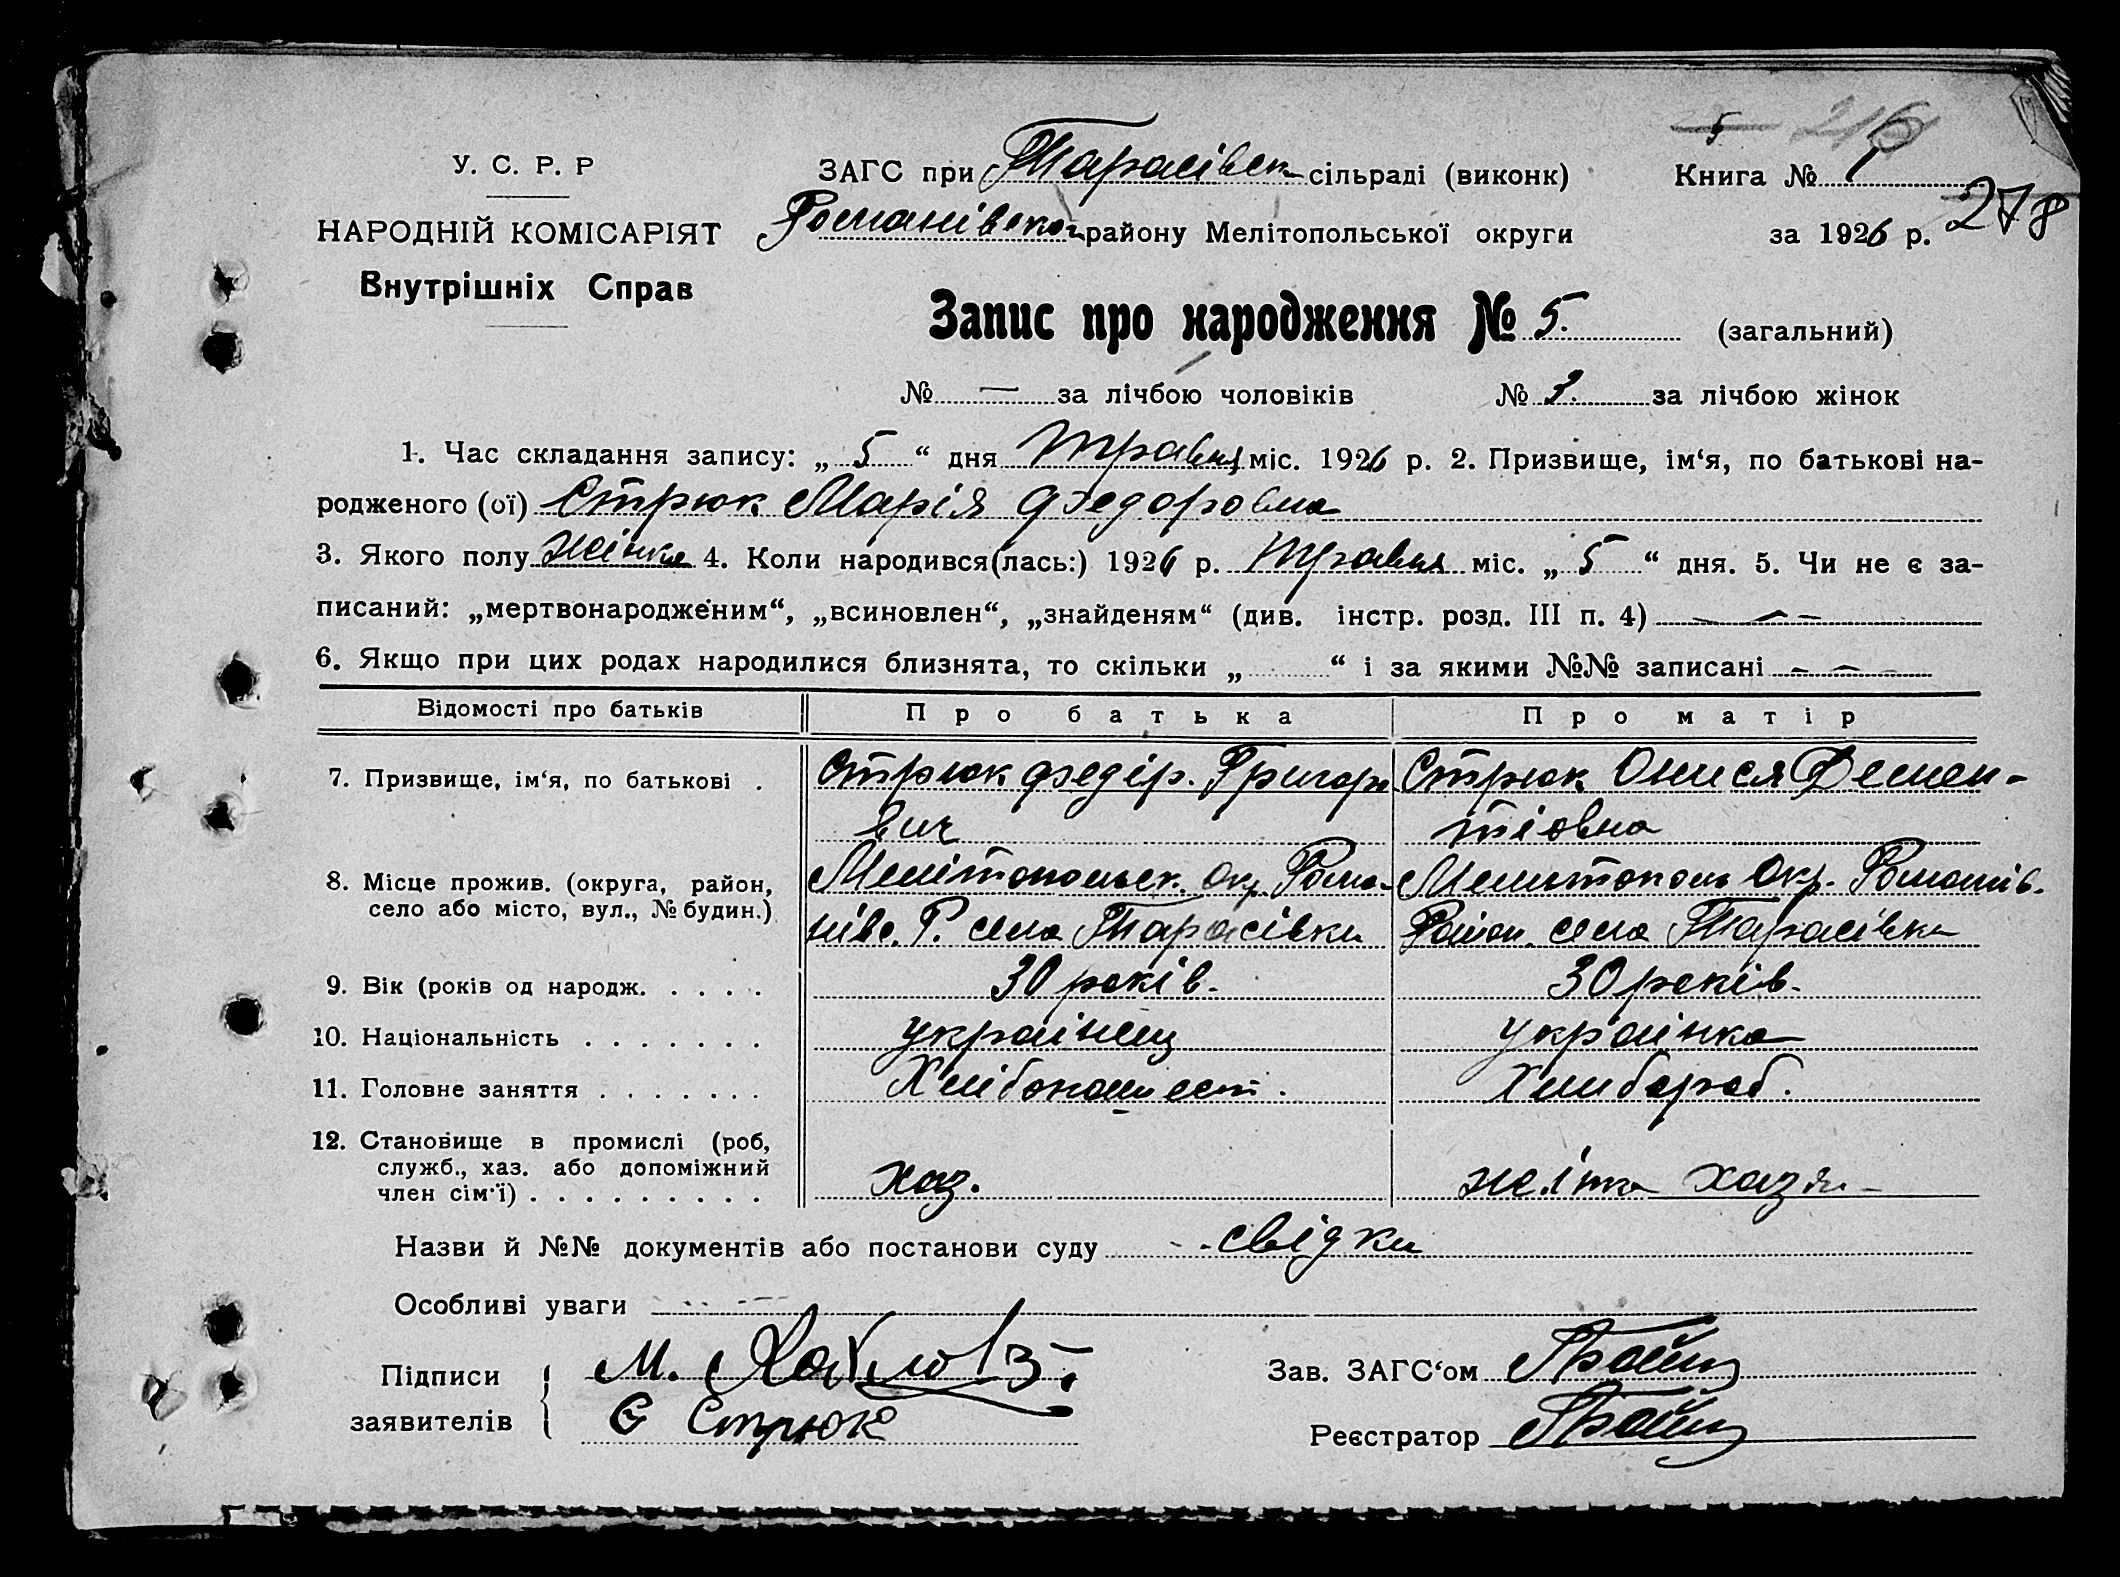 5 216
У. С. Р. Р
НАРОДНІЙ КОМІСАРІЯТ
Внутрішніх Справ
ЗАГС при Тарасівськ сільраді (виконк) Книга № 1
Романівського району Мелітопольської округи за 1926 р. 278
Запис про народження № 5. (загальний)
№ — за лічбою чоловіків № 3. за лічбою жінок
1. Час складання запису: „ 5 “ дня травня міс. 1926 р. 2. Призвище, ім‘я, по батькові на-
родженого (ої) Стрюк Марія Федоровна
3. Якого полу жінка 4. Коли народився(лась:) 1926 р. травня міс. „ 5 “ дня. 5. Чи не є за-
писаний: „мертвонародженим“, „всиновлен“, „знайденям“ (див. інстр. розд. III п. 4) — — —
6. Якщо при цих родах народилися близнята, то скільки „ “ і за якими №№ записані — — —
Відомості про батьків Про батька Про матір
7. Призвище, ім‘я, по батькові . Стрюк Федір. Григоро Стрюк Онися Демен-
вич тіовна
8. Місце прожив. (округа, район, Мелітопольск. Окр. Рома- Мелитополь Окр. Романів.
село або місто, вул., № будин.) нівс. Р. села Тарасівки Район. села Тарасівки
9. Вік (років од народж. . . . . 30 років. 30 років.
10. Національність . . . . . . . українец українка
11. Головне заняття . . . . . . . Хлібопашест. Хлибороб.
12. Становище в промислі (роб,
служб., хаз. або допоміжний хаз.
член сім‘ї) . . . . . . . . .
Назви й №№ документів або постанови суду свідки
Особливі уваги
Підписи М. Зав. ЗАГС‘ом
заявителів Є Стрюк Реєстратор